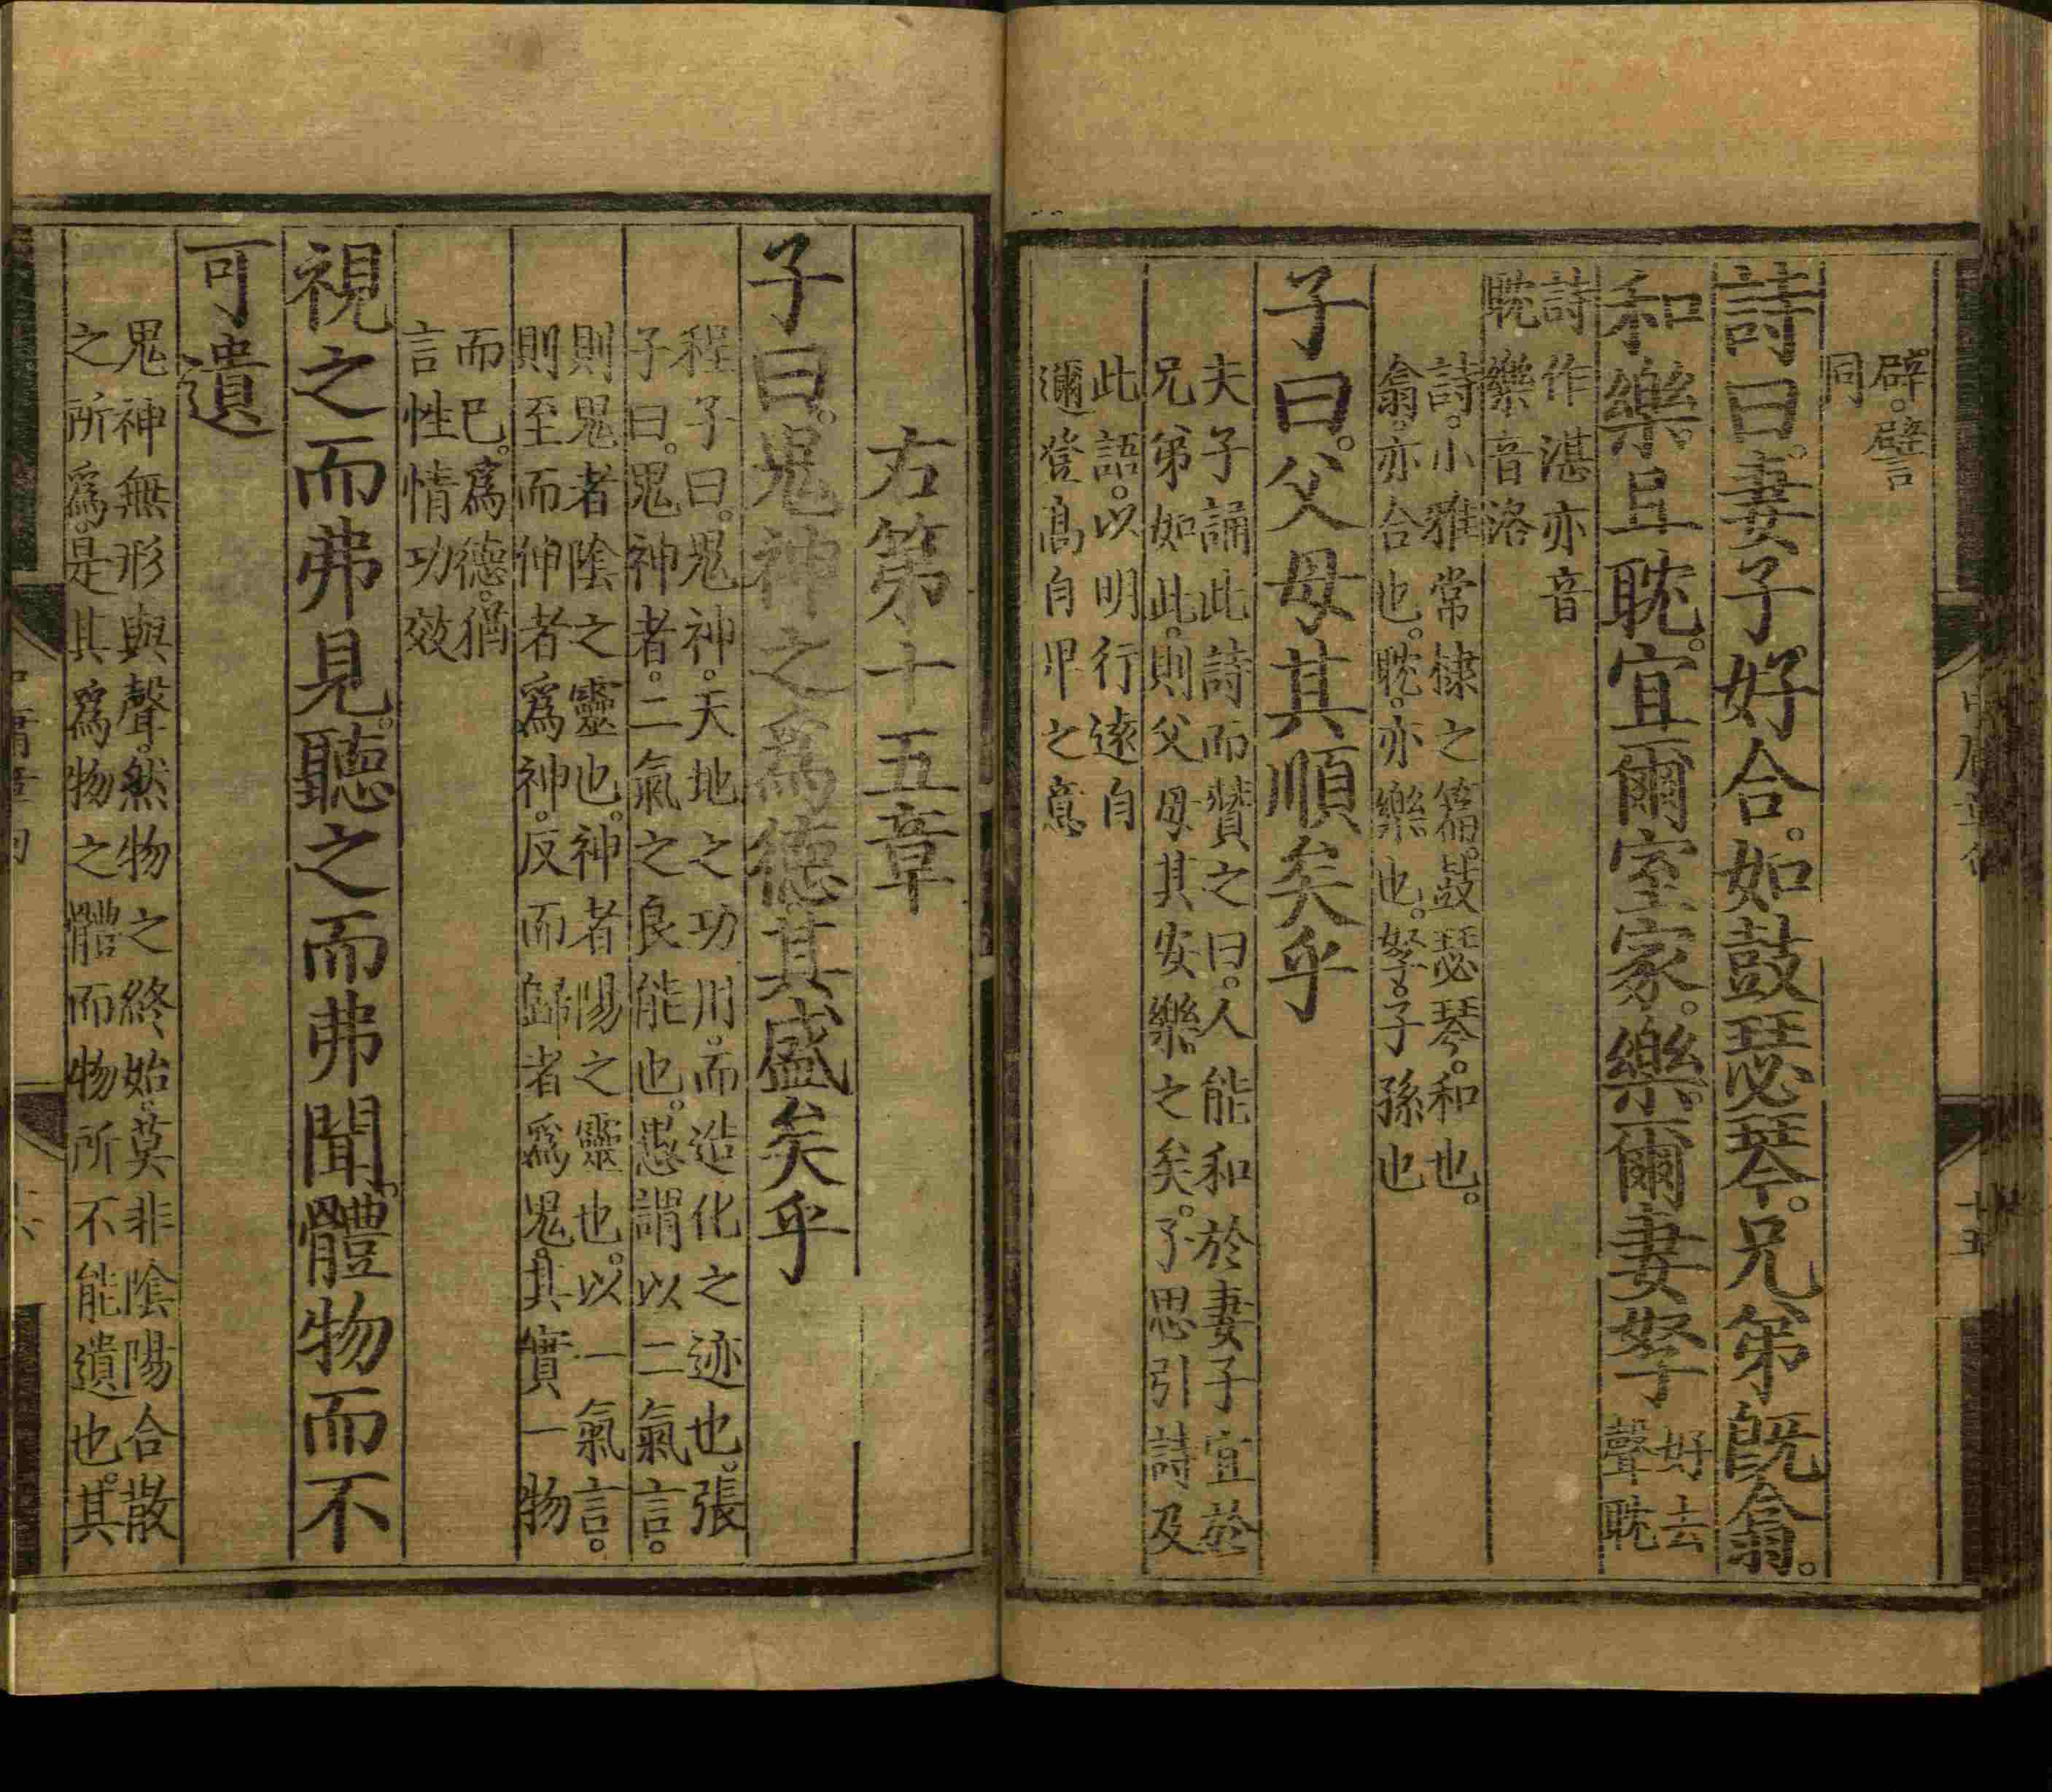 辟。譬
同
詩曰。妻子好合。如鼓瑟琴。兄弟既翕。
和樂。且耽。宜爾室家。樂爾妻孥
好去
聲耽
詩作湛亦音
耽樂音洛
詩。小雅常棣之篇。鼓瑟琴。和也。
翕。亦合也。耽。亦樂也。孥。子孫也
子曰。父母其順矣乎
夫子誦此詩而贊之曰。人能和於妻子宜於
兄弟如此。則父母其安樂之矣。子思引詩及
此語。以明行遠自
邇登高自卑之意
右第十五章
子曰。鬼神之爲德其盛矣乎
程子曰。鬼神。天地之功用。而造化之迹也。張
子曰。鬼神者。二氣之良能也。愚謂以二氣言。
則鬼者陰之靈也。神者陽之靈也。以一氣言。
則至而伸者爲神。反而歸者爲鬼。其實一物
而已。爲德。猶
言性情功效
視之而弗見。聽之而弗聞。體物而不
可遺
鬼神無形與聲。然物之終始。莫非陰陽合散
之所爲。是其爲物之體而物所不能遺也。其